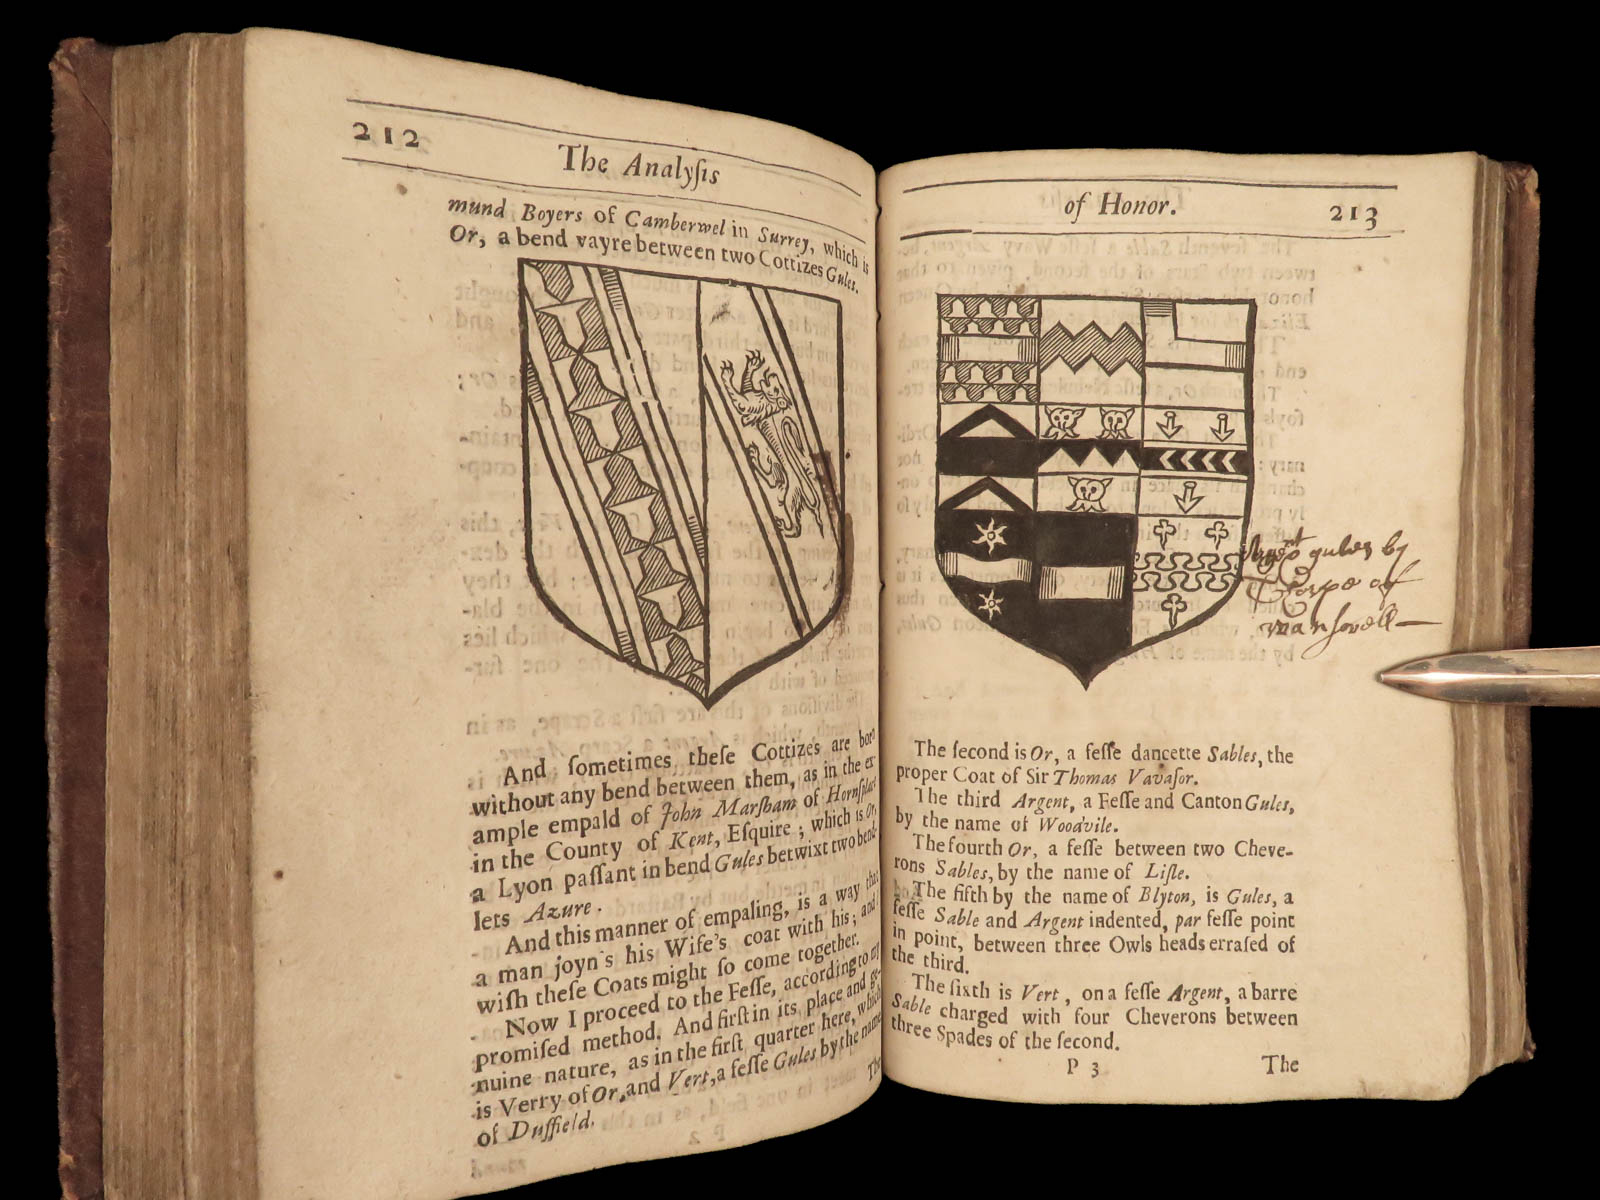 212
The Analyſis
mund Boyers of Camberwel in Surrey, which is
Or, a bend vayre between two Cottizes Gules.
And ſometimes theſe Cottizes are born
without any bend between them, as in the ex
ample empald of John Marſham of Hornſplace
in the County of Kent, Eſquire; which is Or,
a Lyon paſſant in bend Gules betwixt two bend-
lets Azure.
And this manner of empaling, is a way that
a man joyn's his Wife's coat with his; and I
wiſh theſe Coats might ſo come together.
Now I proceed to the Feſſe, according to my
promiſed method. And firſt in its place and ge-
nuine nature, as in the firſt quarter here, which
is Verry of Or, and Vert, a feſſe Gules by the name
of Duffield.
The
of Honor.
213
Argent gules by
Thorpe of
The ſecond is Or, a feſſe dancette Sables, the
proper Coat of Sir Thomas Vavaſor.
The third Argent, a Feſſe and Canton Gules,
by the name of Woodvile.
The fourth Or, a feſſe between two Cheve-
rons Sables, by the name of Liſle.
The fifth by the name of Blyton, is Gules, a
feſſe Sable and Argent indented, par feſſe point
in point, between three Owls heads erraſed of
the third.
The ſixth is Vert, on a feſſe Argent, a barre
Sable charged with four Cheverons between
three Spades of the ſecond.
P 3
The